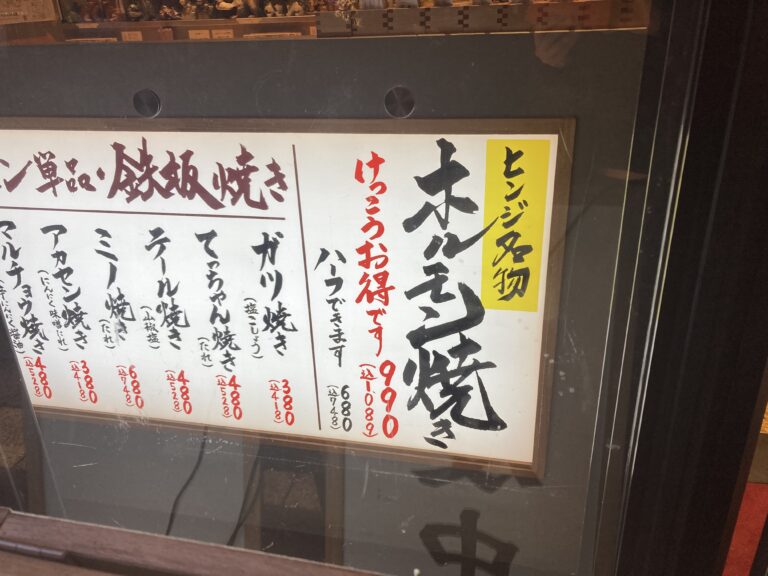 ヒンジ名物
ホルモン焼き
けっこうお得です
990
(込1089)
ハーフできます
680
(込748)
ン単品・鉄板焼き
ガツ焼き
(塩こしょう)
380
(込418)
てっちゃん焼き
(たれ)
480
(込528)
テール焼き
(山椒塩)
480
(込528)
ミノ焼き
(たれ)
680
(込748)
アカセン焼き
(にんにく味噌だれ)
380
(込418)
マルチョウ焼き
480
(込528)
中